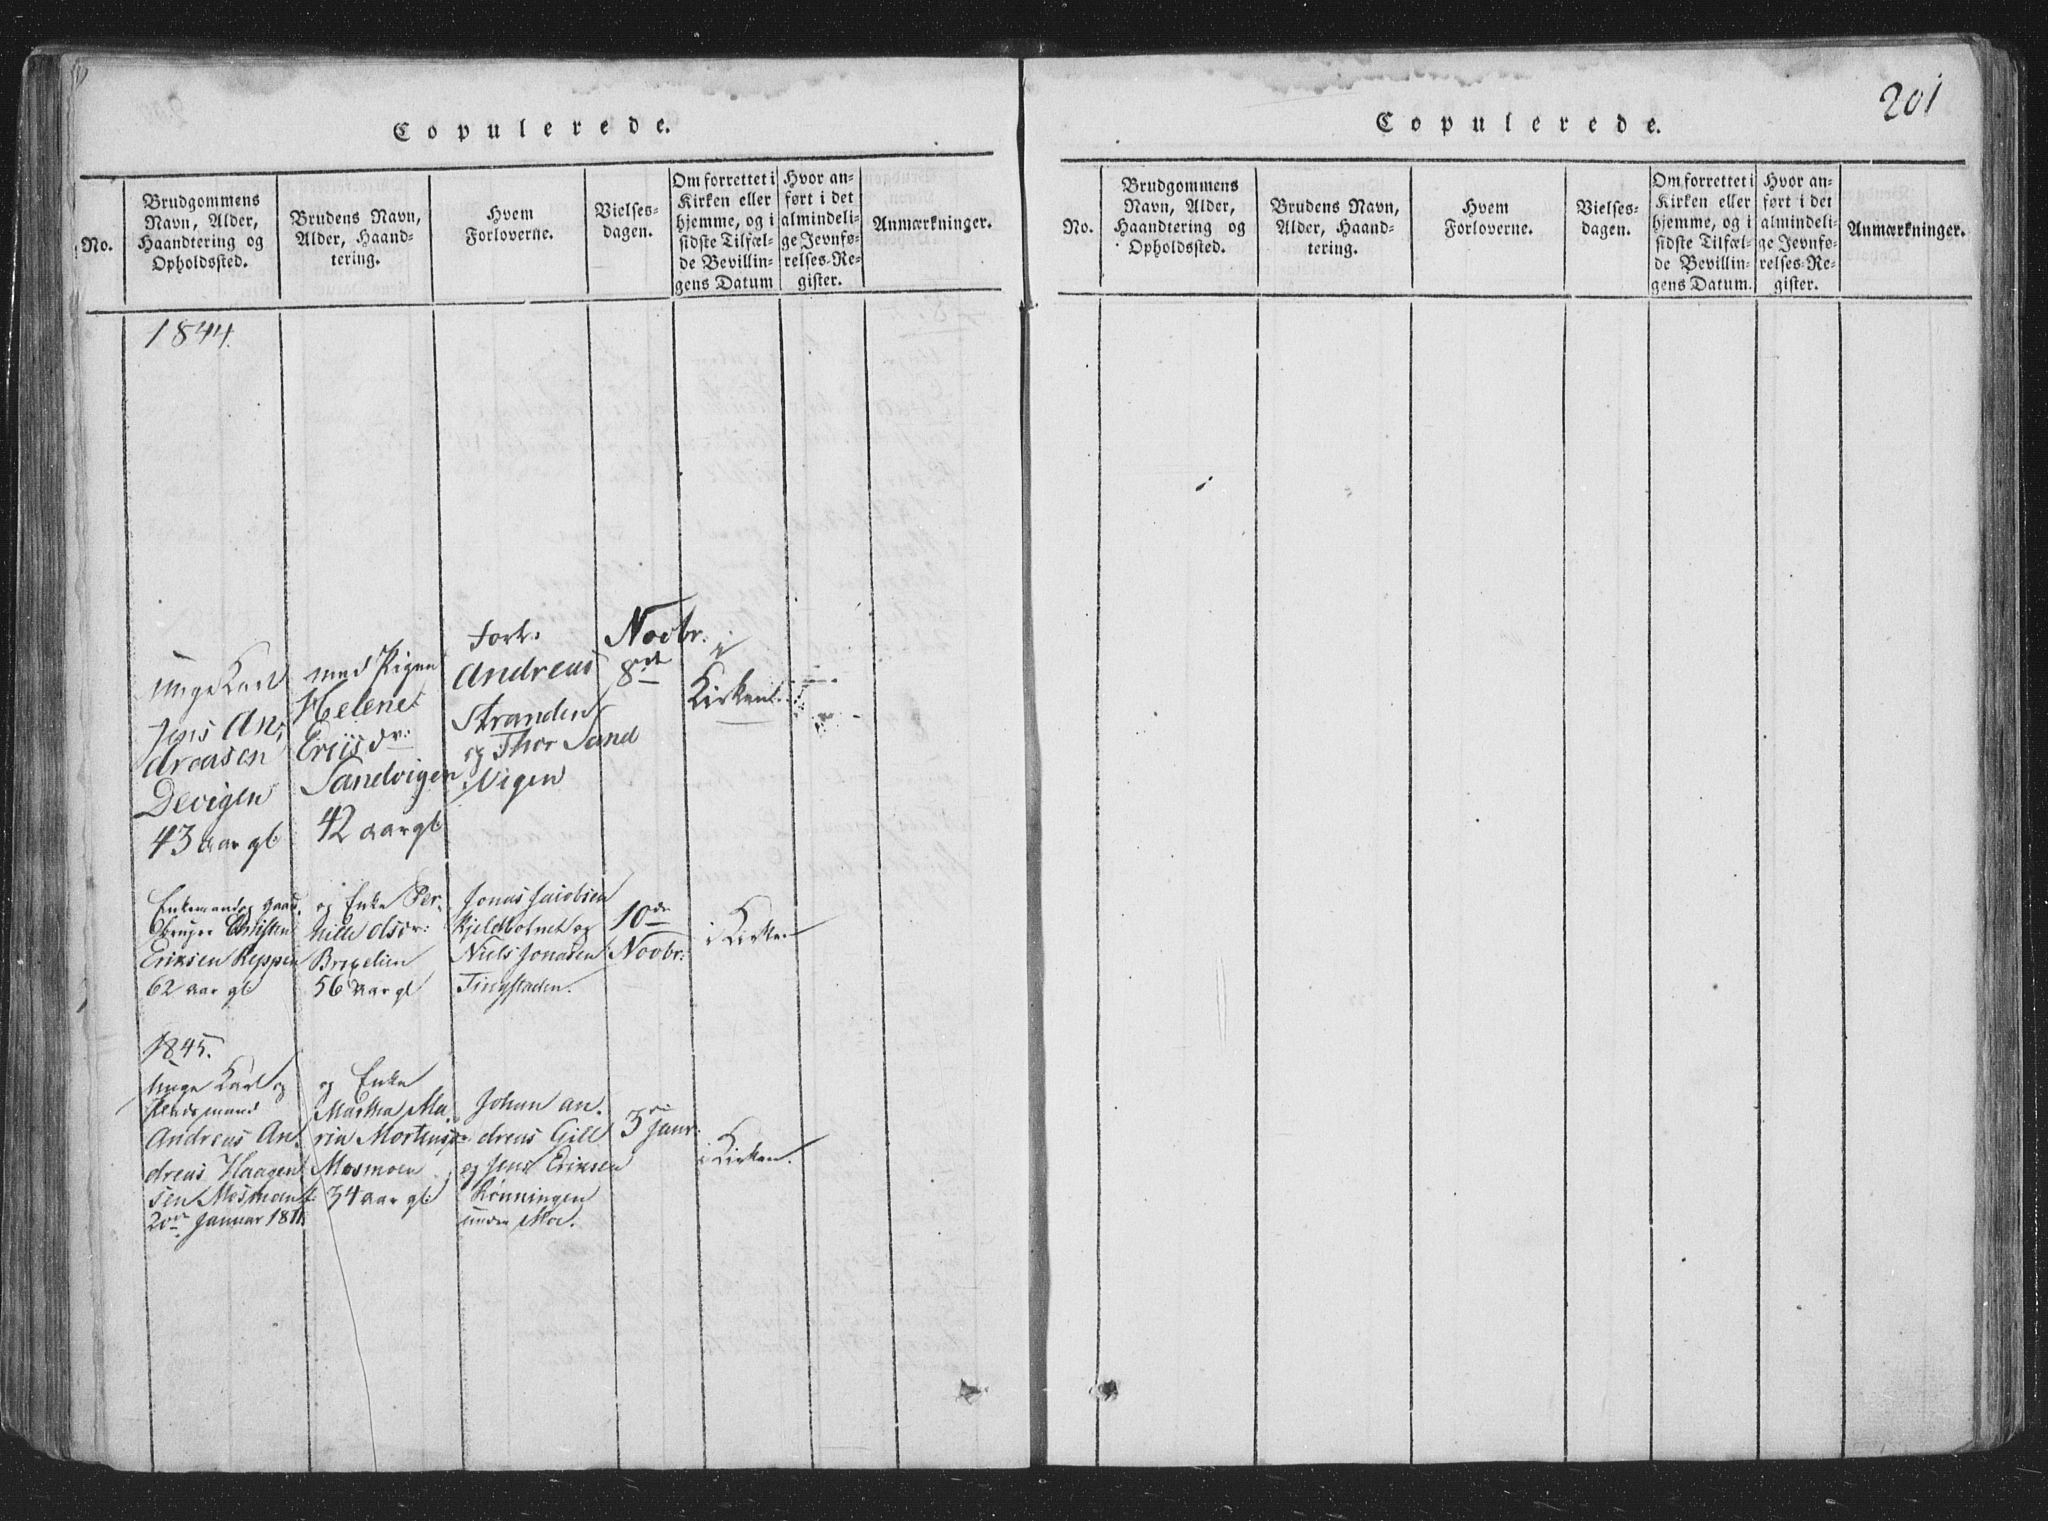 Copulerede.
No.
Brudgommens
Navn, Alder,
Haandtering og
Opholdssted.
Brudens Navn,
Alder, Haand-
tering.
Hvem
Forloverne.
Vielses-
dagen.
Om forrettet i
Kirken eller
hjemme, og i
sidste Tilfæl-
de Bevillin-
gens Datum
Hvor an-
ført i det
almindeli-
ge Jevnfø-
relses-Re-
gister.
Anmærkninger.
1844.
unge Karl
Jens An-
dreasen
Devigen
43 aar gl
med Pigen
Helene
Eriisdr:
Sandvigen
42 aar gl
Forl:
Andreas
Stranden
og Thor Sand
Vigen
Novbr.
8de
i
Kirken
Enkemand og gaard
bruger Christen
Eriksen Keppen
62 aar gl
og Enke Per-
nille Olsdr:
Brexelien
56 aar gl
Jonas Jacobsen
Kjeldholmet og
Niels Jonasen
Tingstaden.
10de
Novbr:
i Kirken
1845.
Unge Karl og
Andreas An-
dreas Haagen
sen Mosmoen f.
20de Januar 1811
og Enke
Martha Ma-
ria Mortensd
Mosmoen
34 aar gl:
Johan an-
dreas Gill
og Jens Eriksen
Rønningen
under Moe.
3de Janr:
i Kirken.
201
Copulerede.
No.
Brudgommens
Navn, Alder,
Haandtering og
Opholdssted.
Brudens Navn,
Alder, Haand-
tering.
Hvem
Forloverne.
Vielses-
dagen.
Om forrettet i
Kirken eller
hjemme, og i
sidste Tilfæl-
de Bevillin-
gens Datum.
Hvor an-
ført i det
almindeli-
ge Jevnfø-
relses-Re-
gister.
Anmærkninger.